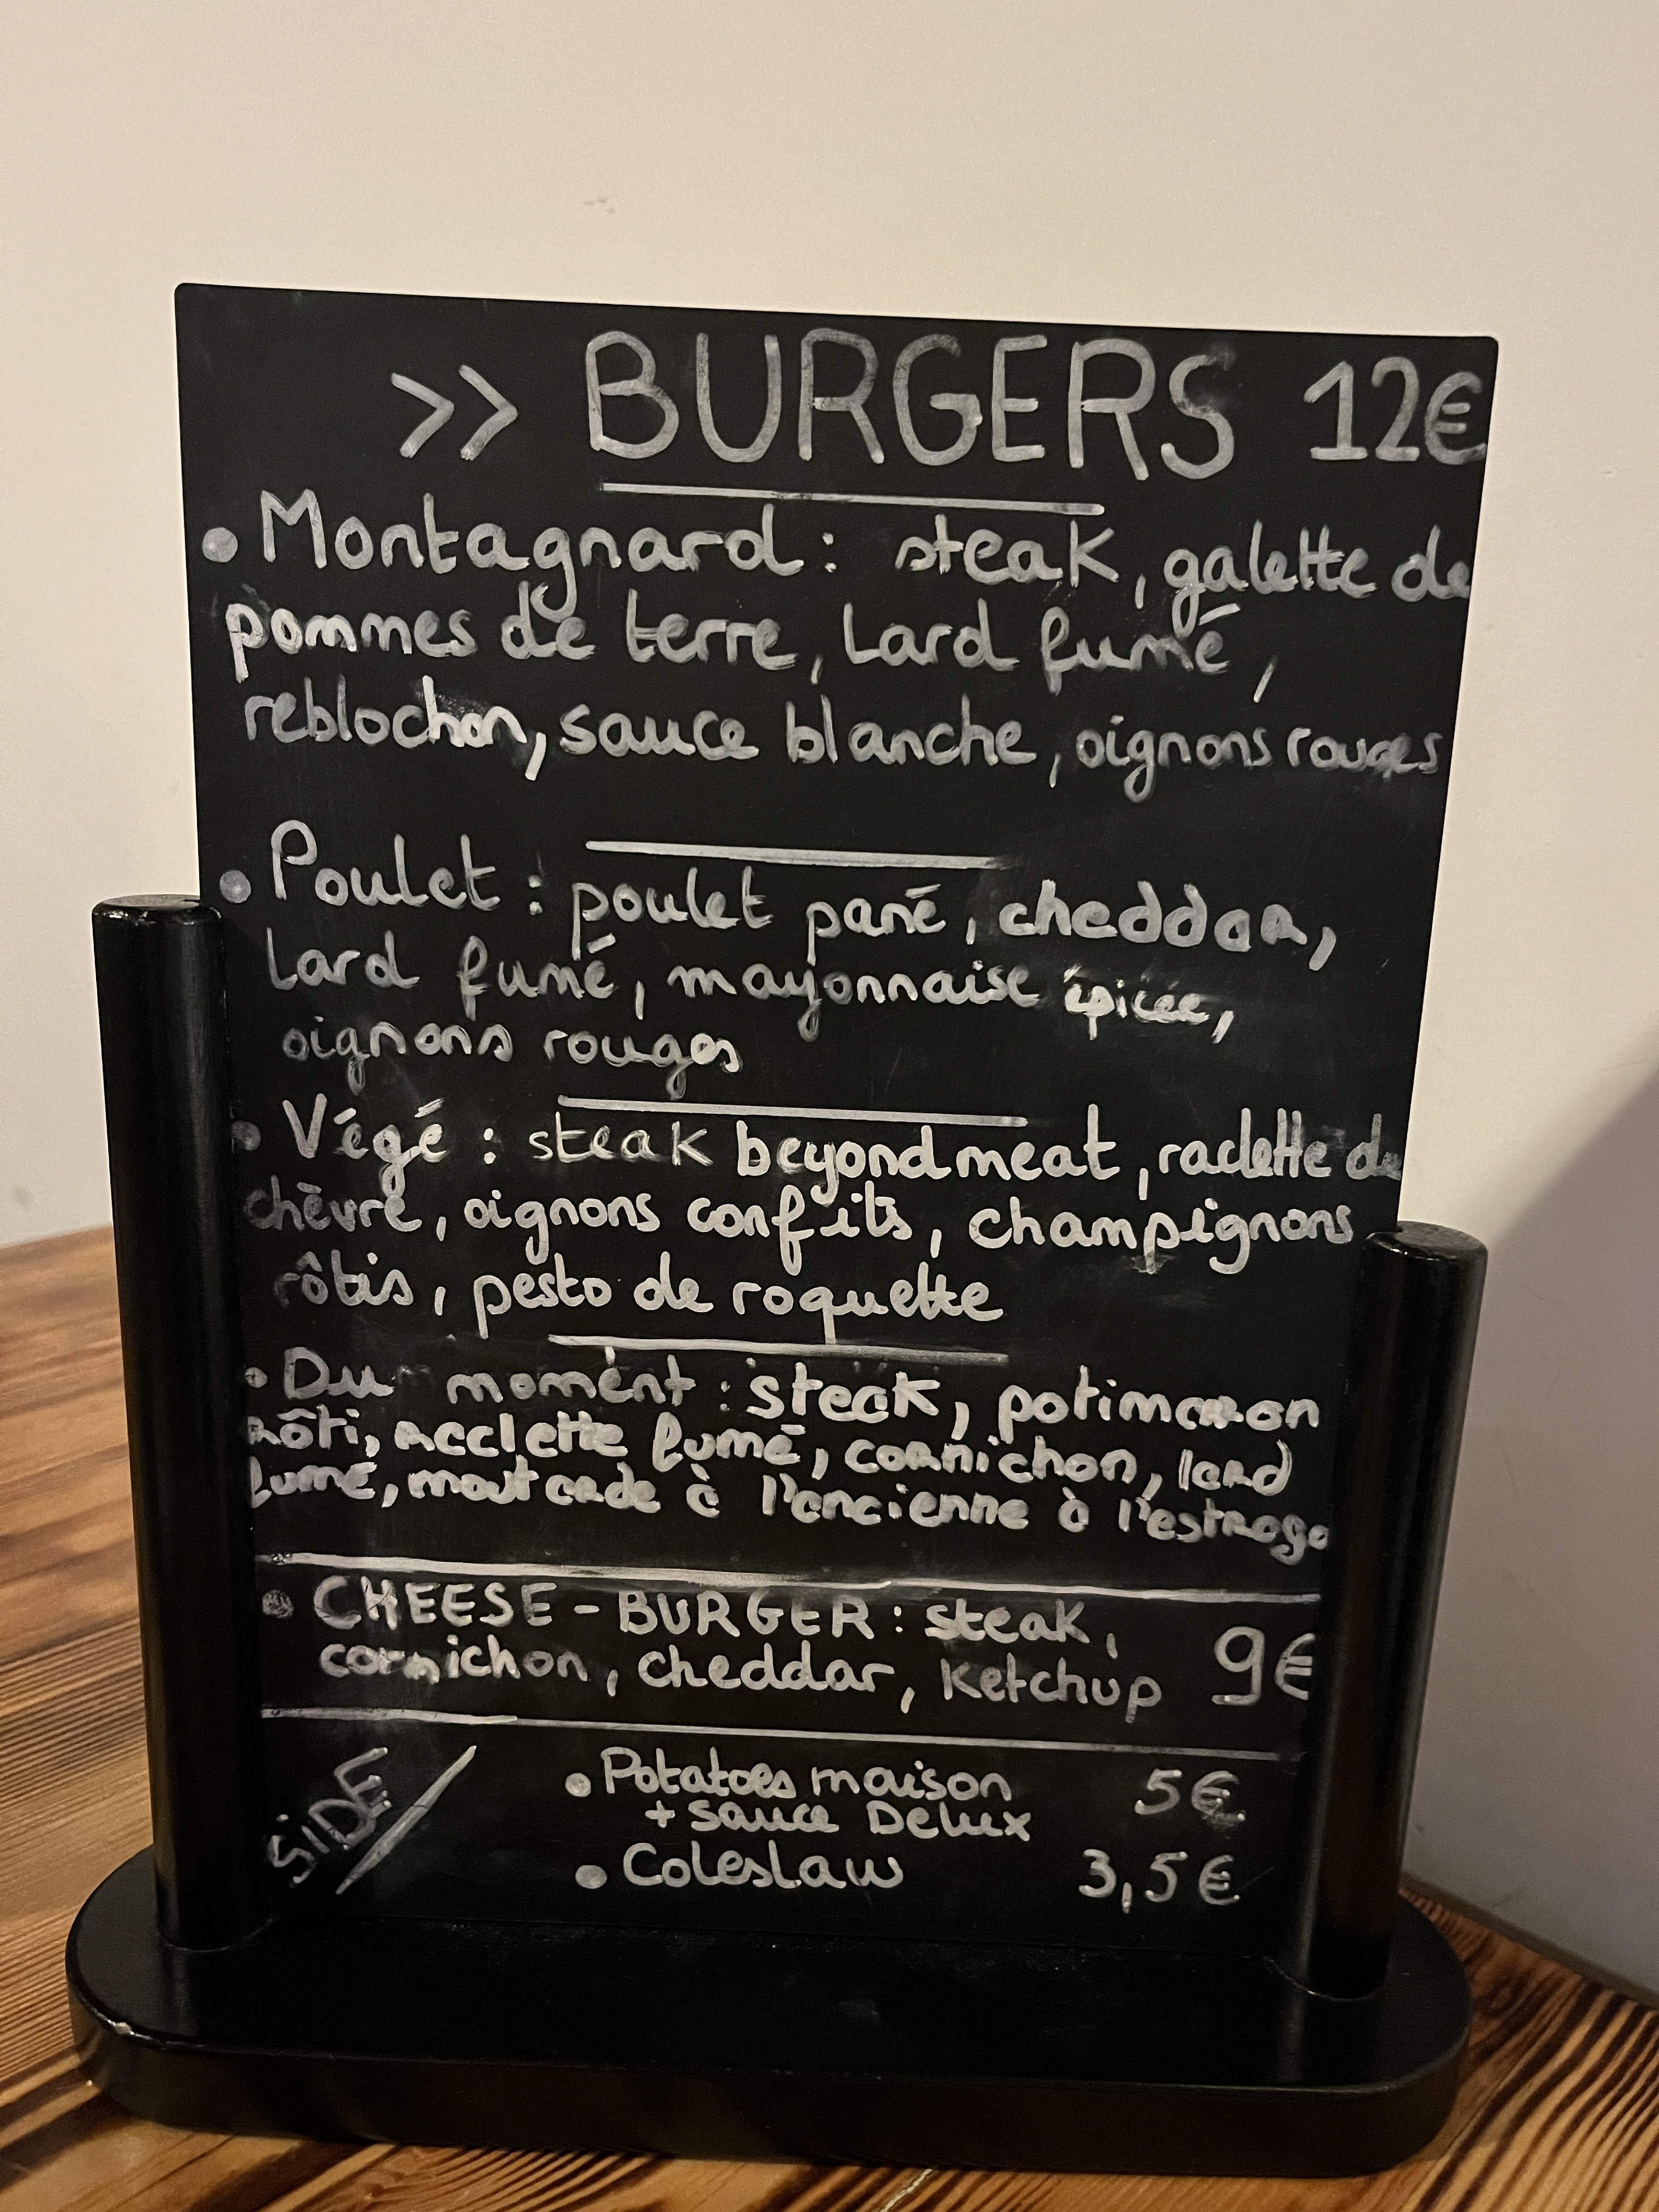 >> BURGERS 12€
• Montagnard : steak, galette de
pommes de terre, Lard fumé,
reblochon, sauce blanche, oignons rouges
• Poulet : poulet pané, cheddar,
Lard fumé, mayonnaise épicée,
oignons rouges
• Végé : steak beyondmeat, raclette de
chèvre, oignons confits, champignons
rôtis, pesto de roquette
• Du moment : steak, potimarron
rôti, racclette fumé, cornichon, lard
fumé, moutarde à l'ancienne à l'estrago
• CHEESE-BURGER : steak,
cornichon, cheddar, Ketchup 9€
SiDE
• Potatoes maison 5€
+ sauce Delux
• Coleslaw 3,5€